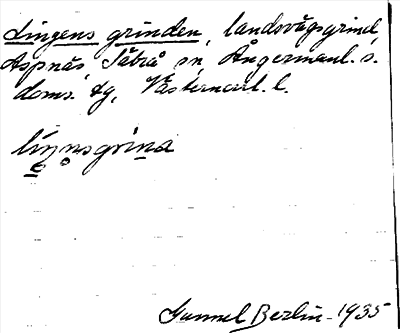 Lingens grinden, landsvägsgrind,
Aspnäs, Säbrå sn, Ångermanl. s.
doms. tg, Västernorrl. l.
līnnsgrina
Gunnel Berlin - 1935